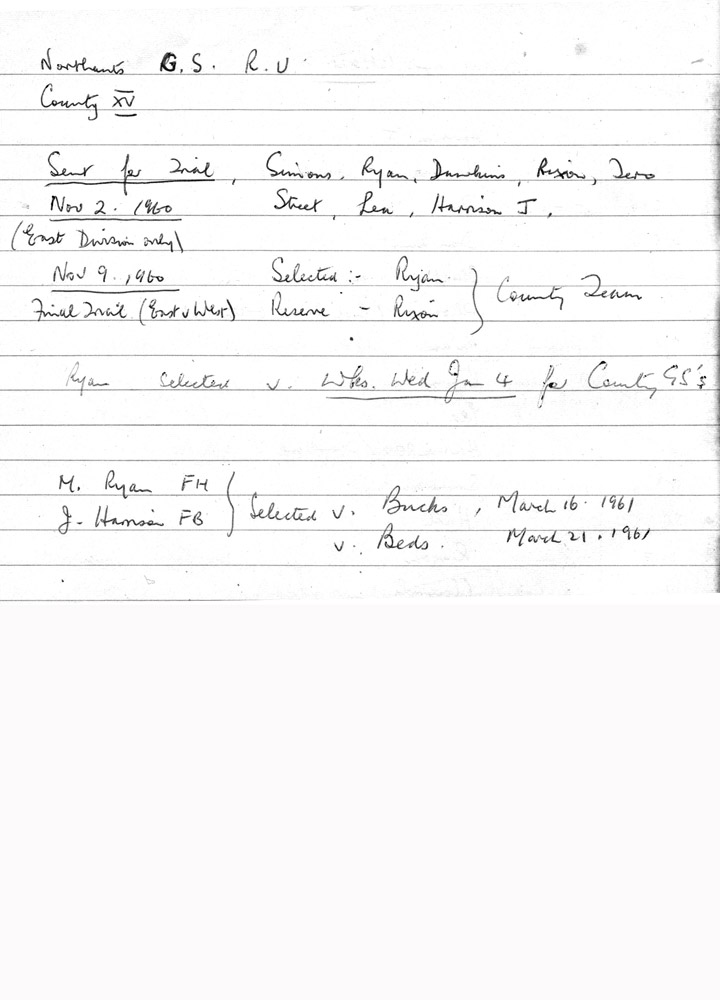 Northants G.S. R.U.
County XV
Sent for Trial, Simions, Ryan, Dawkins, Rixon, Tero
Nov 2. 1960 Street, Lea, Harrison J.
(East Division only)
Nov 9. 1960 Selected :- Ryan
Final Trail (East v West) Reserve - Rixon } County Team
Ryan selected v. Wks. Wed Jan 4 for County GS's
M. Ryan FH
J. Harrison FB } Selected v. Bucks, March 16. 1961
v. Beds. March 21. 1961